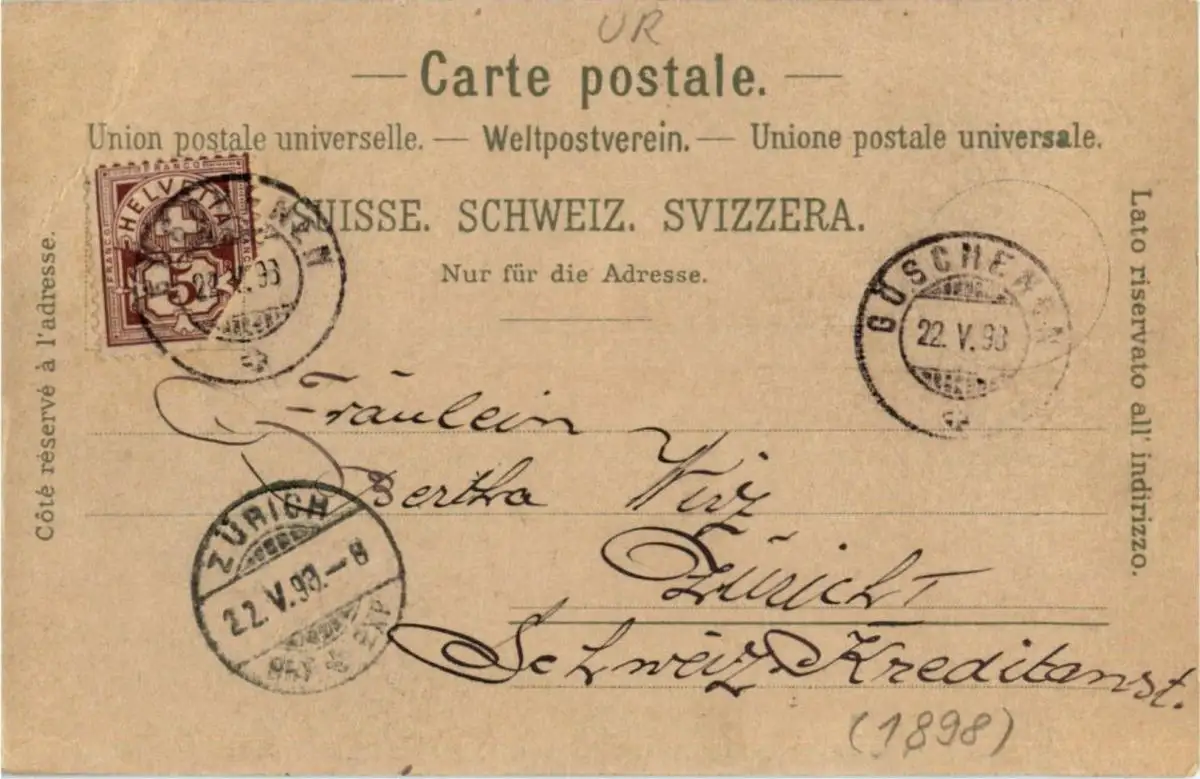 UR
— Carte postale. —
Union postale universelle. — Weltpostverein. — Unione postale universale.
SUISSE. SCHWEIZ. SVIZZERA.
Nur für die Adresse.
Côté réservé à l'adresse.
Lato riservato all' indirizzo.
FRANCO
HELVETIA
5
22.V.98
GÖSCHENEN
22.V.98
Fräulein
Bertha Wirz
Zürich I
Schweiz. Kreditanst.
ZÜRICH
22.V.98.–8
EXP
(1898)